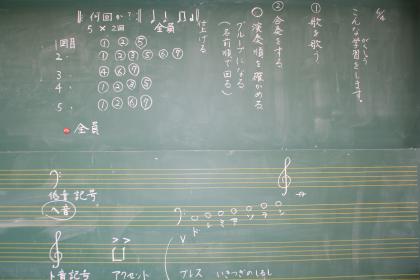 6/6
こんな学習をします。
がくしゅう
① 歌を歌う
② 合奏をする
○演奏順を確かめる
グループになる
(名前順で回る)
仕上げる
何回か?
5×2回
全員
1回目 ① ② ⑤
2. ① ② ③ ⑤ ⑥ ⑦
3. ④ ⑥ ⑦
4. ① ② ③ ⑤
5. ① ② ⑥ ⑦
全員
低音記号
ヘ音
ト音記号
アクセント
V
ブレス いきつぎのしるし
ド レ ミ ファ ソ ラ シ